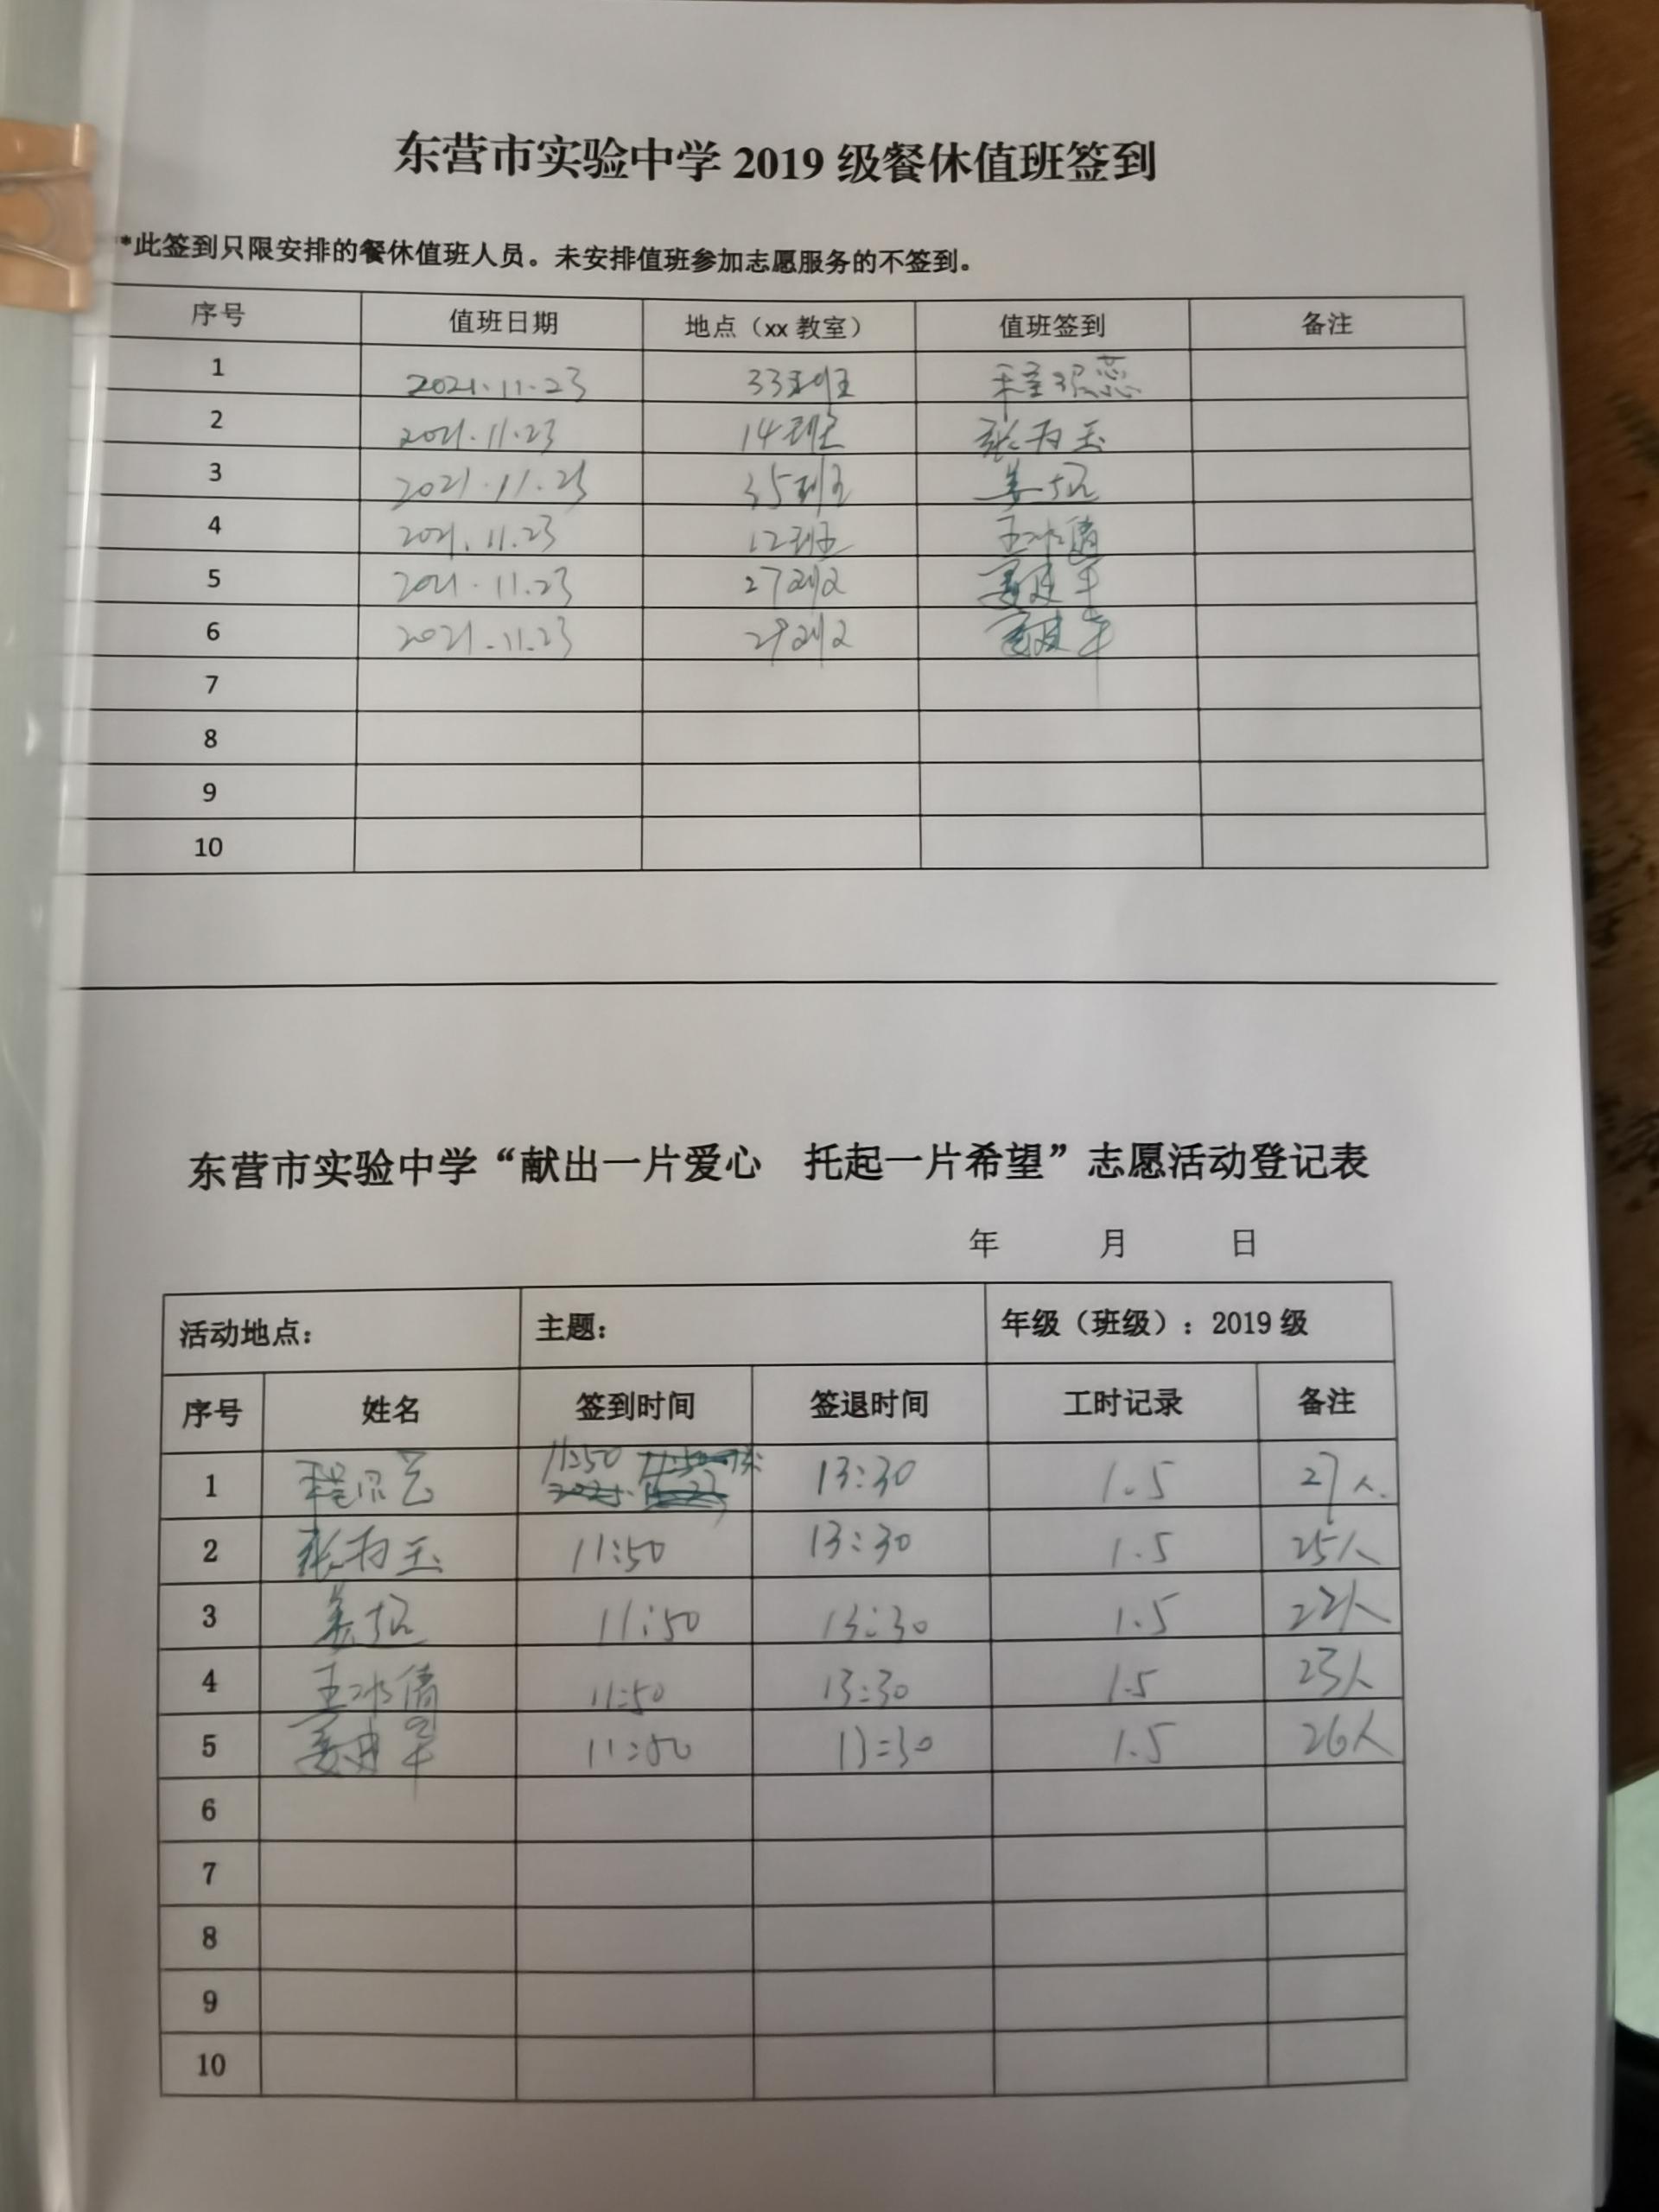 东营市实验中学 2019 级餐休值班签到
*此签到只限安排的餐休值班人员。未安排值班参加志愿服务的不签到。
序号 值班日期 地点（xx 教室） 值班签到 备注
1 2021.11.23 33班
2 2021.11.23 14班 张为玉
3 2021.11.23 35班 姜
4 2021.11.23 12班 王冰倩
5 2021.11.23 27班
6 2021.11.23 29班
7
8
9
10
东营市实验中学“献出一片爱心 托起一片希望”志愿活动登记表
年 月 日
活动地点： 主题： 年级（班级）：2019 级
序号 姓名 签到时间 签退时间 工时记录 备注
1 程 11:50 13:30 1.5 27人.
2 张为玉 11:50 13:30 1.5 25人
3 姜 11:50 13:30 1.5 22人
4 王冰倩 11:50 13:30 1.5 23人
5 11:50 13:30 1.5 26人
6
7
8
9
10